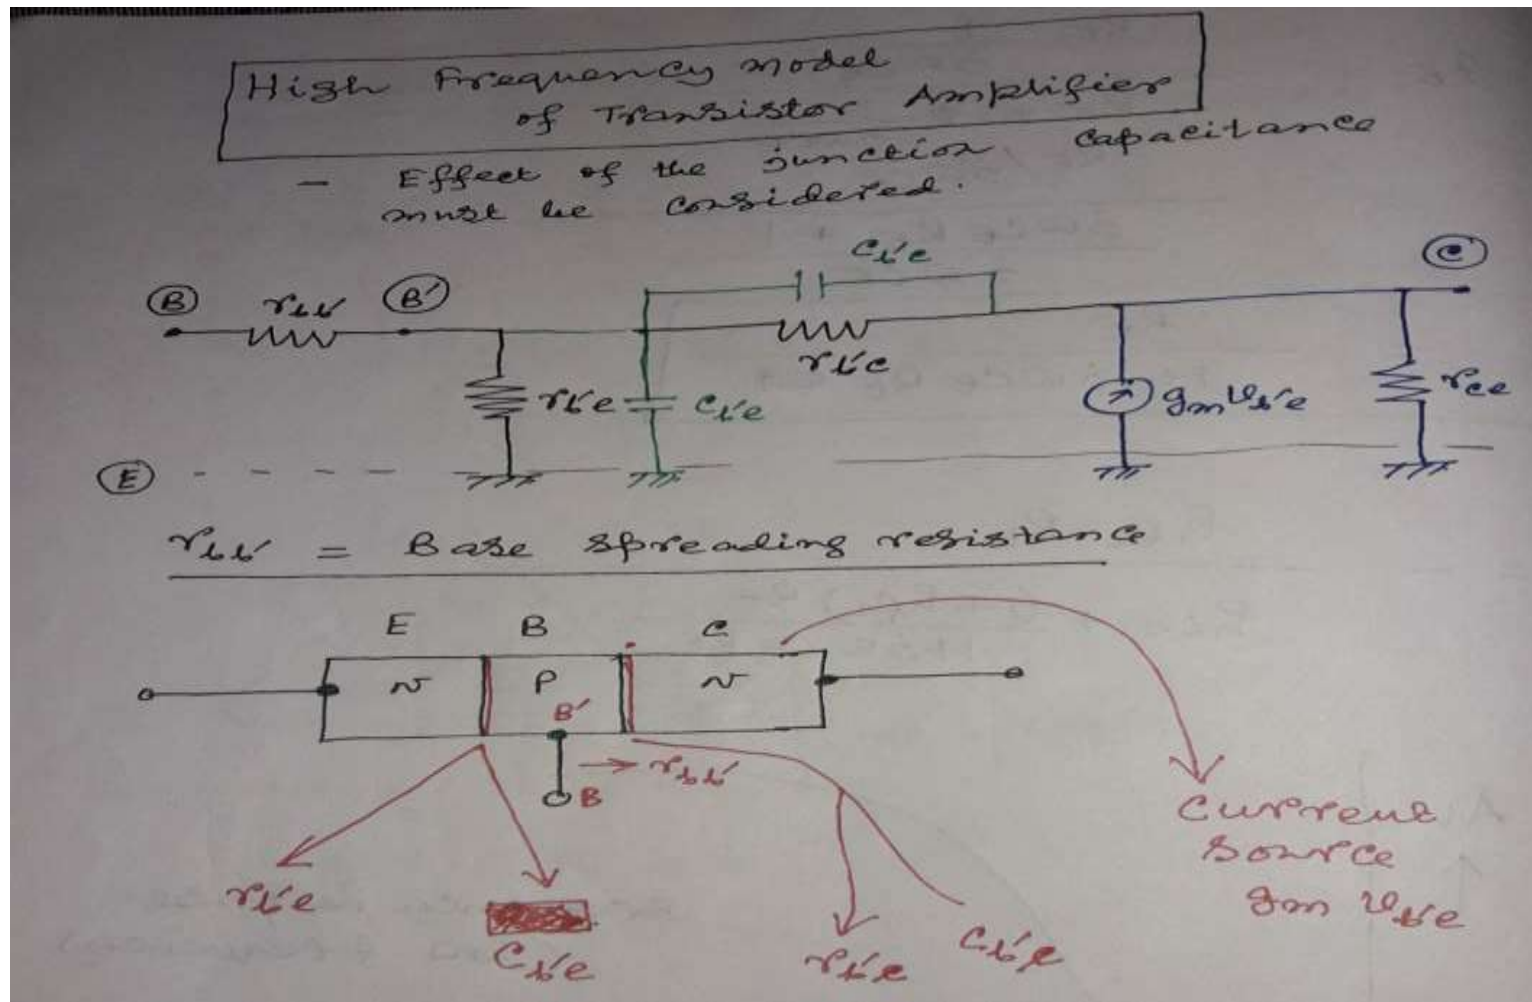 High Frequency model
of Transistor Amplifier
- Effect of the junction capacitance
must be considered.
C_b'c
B r_bb' B' C
r_b'c
r_b'e C_b'e g_m v_b'e r_ce
E
r_bb' = Base spreading resistance
E B C
N P N
B'
→ r_bb'
B
Current
source
g_m v_b'e
r_b'e
C_b'e
r_b'e C_b'e